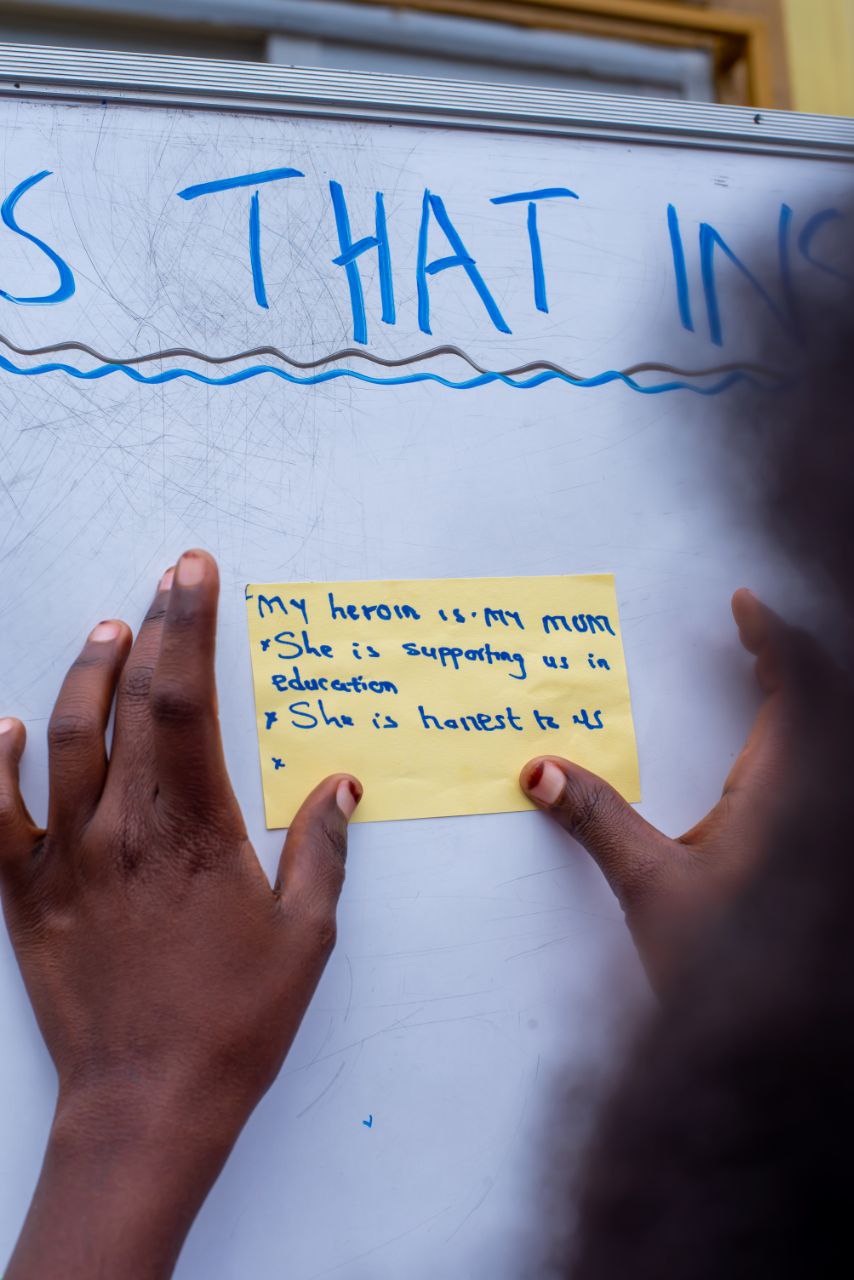 S THAT INS
My heroin is my mum
* She is supporting us in
education
* She is honest to us
*